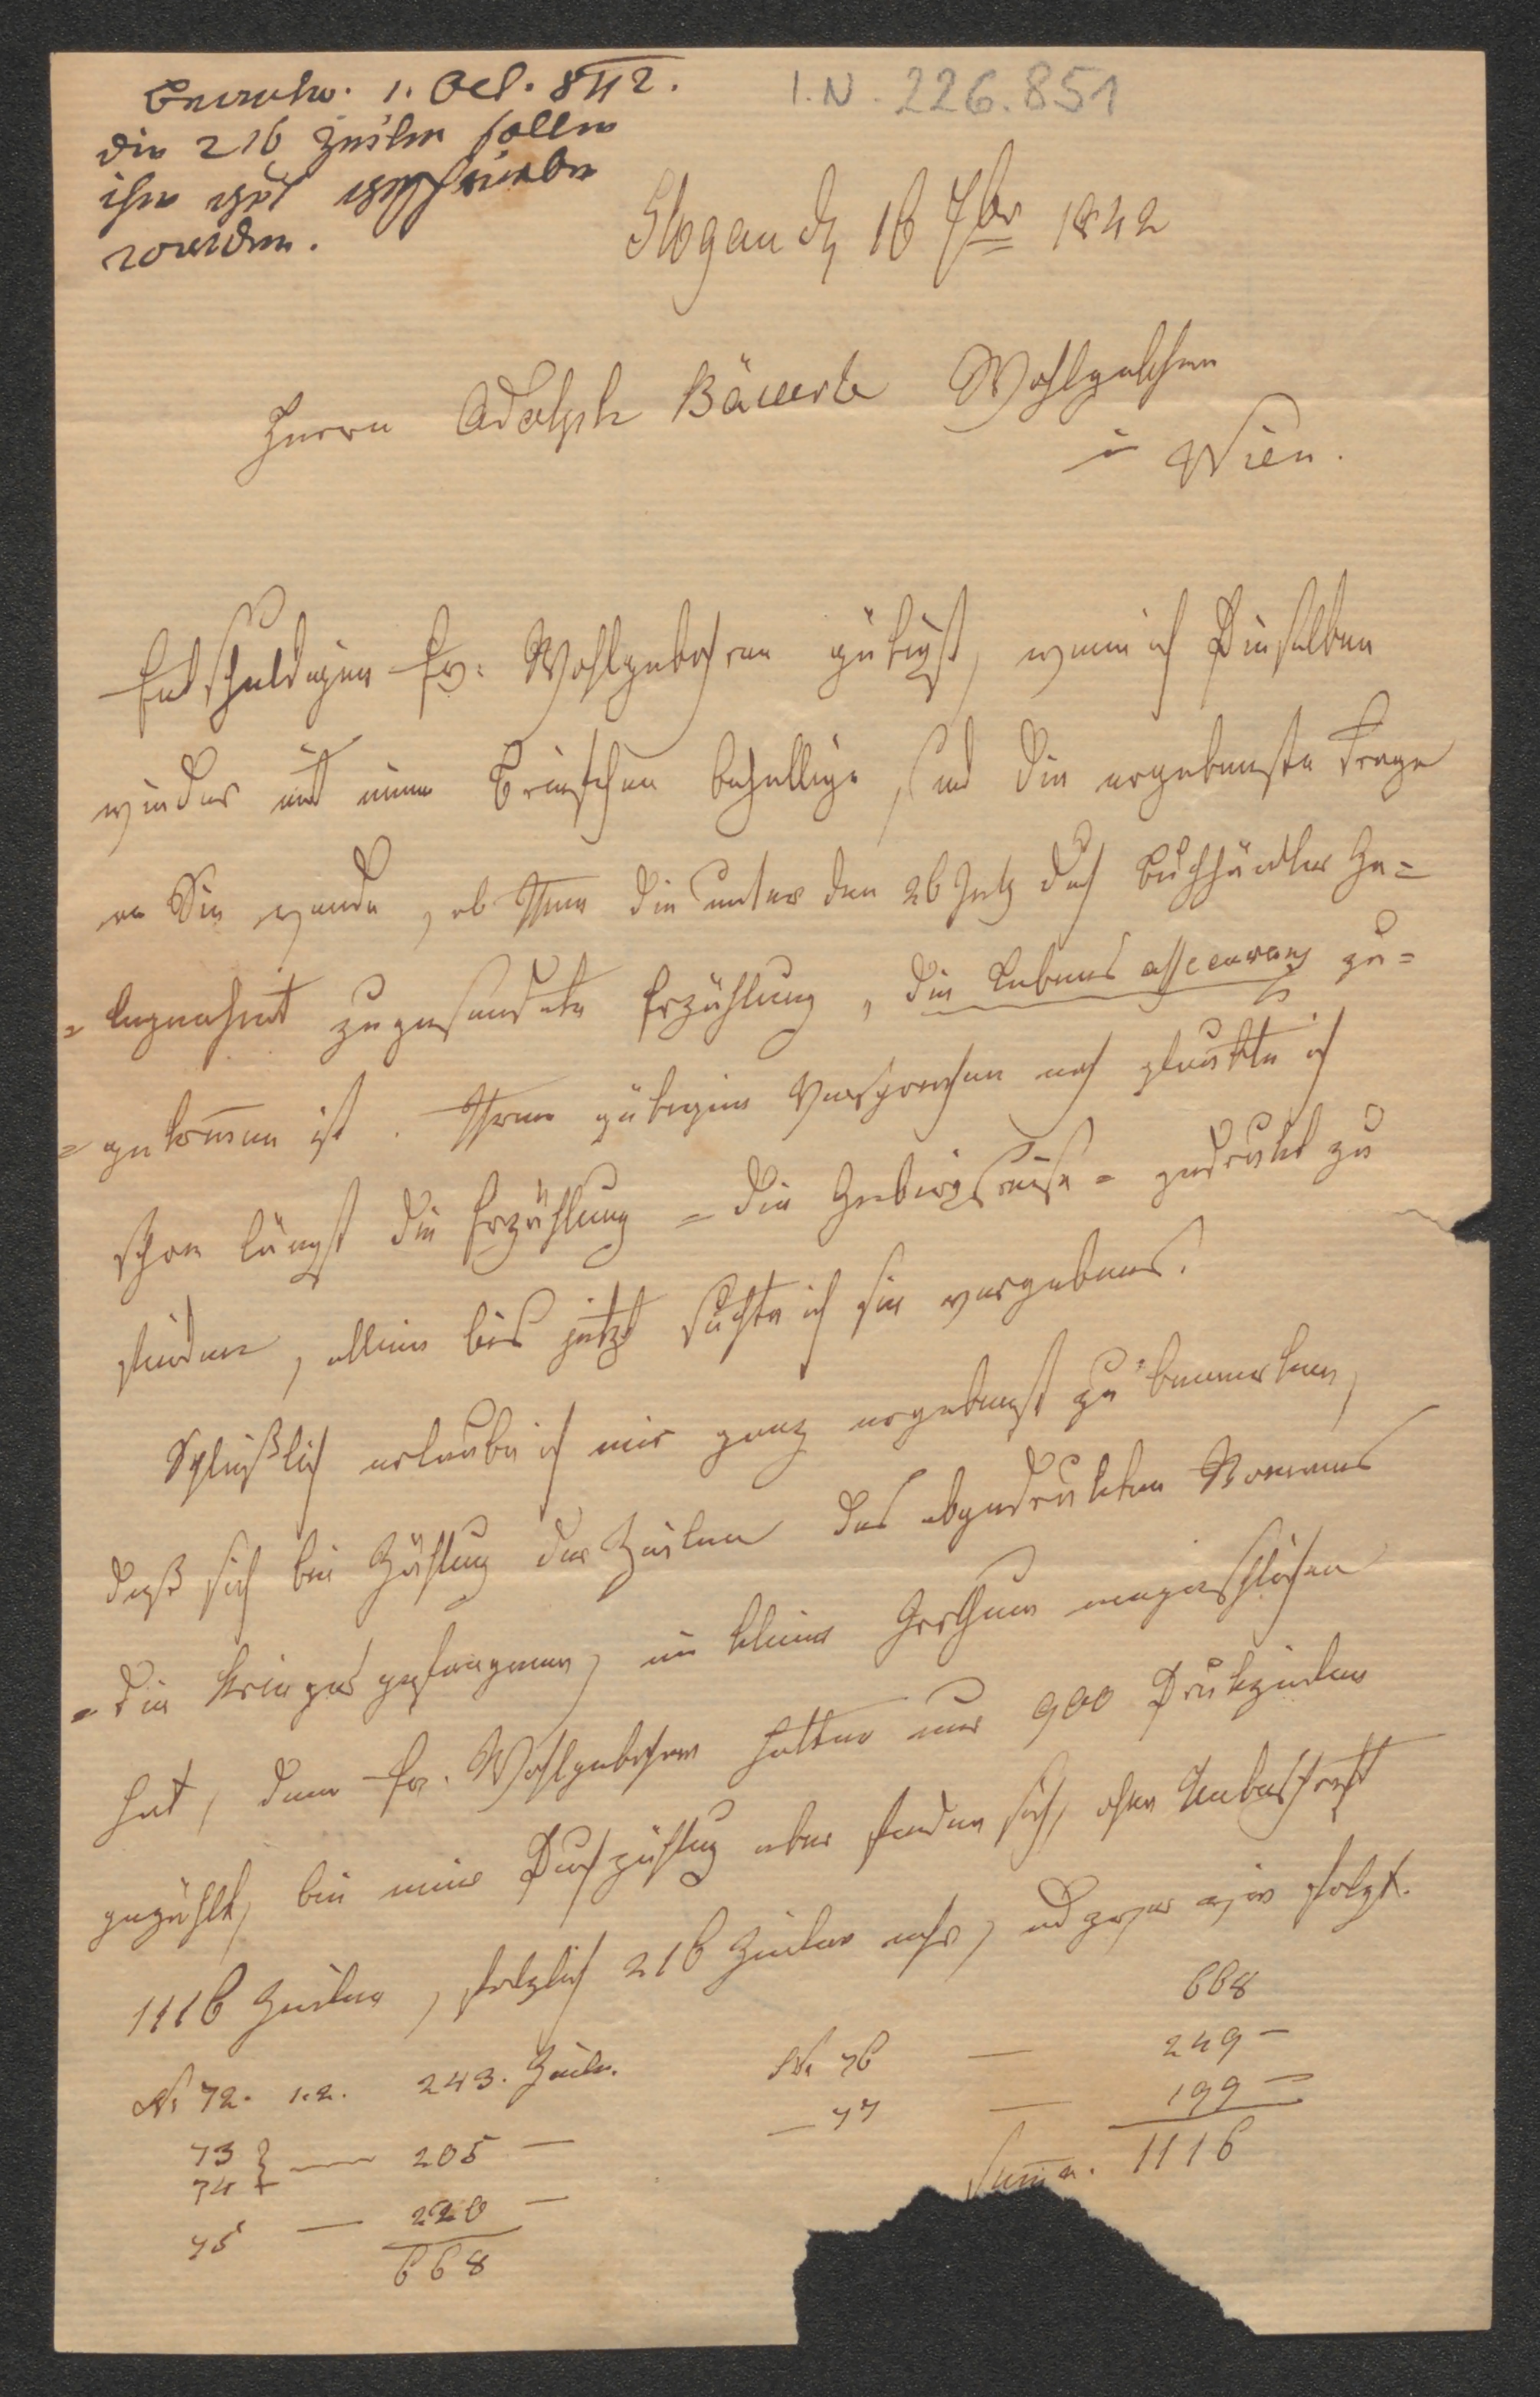 Beantw. 1. Oct. 842.
die 216 Zeilen sollen
ihm gut geschrieben
werden.
I.N. 226.851
Glogau d. 16 7br 1842
Herrn Adolph Bäuerle Wohlgebohren
in Wien.
Entschuldigen Ew: Wohlgebohren gütigst, wenn ich Dieselben
wieder mit einem Briefchen behellige, und die ergebenste Frage
an Sie wende, ob Ihnen die unter den 26 July durch Buchhändler Ge=
=legenheit zugesendete Erzählung „die Lebens assecuranz zu=
=gekom̄en ist. Ihrem gütigen Versprechen nach glaubte ich
schon längst die Erzählung = die Gebirgsreise = gedruckt zu
finden, allein bis jetzt suchte ich sie vergebens.
Schlüßlich erlaube ich mir ganz ergebenst zu bemerken,
daß sich bei Zählung der Zeilen des abgedruckten Romans
= die Kriegsgefangenen, ein kleiner Irrthum eingeschlichen
hat, denn Ew. Wohlgebohren hatten nur 900 Druckzeilen
gezählt, bei meiner Durchzählung aber fanden sich, ohne Ueberschrift
1116 Zeilen, folglich 216 Zeilen mehr, und zwar wie folgt.
No 72. 1.2. 243. Zeilen.
73 } — 205 —
74
75 — 220 —
668
668
No 76 — 249 —
— 77 — 199 —
Sum̄a. 1116